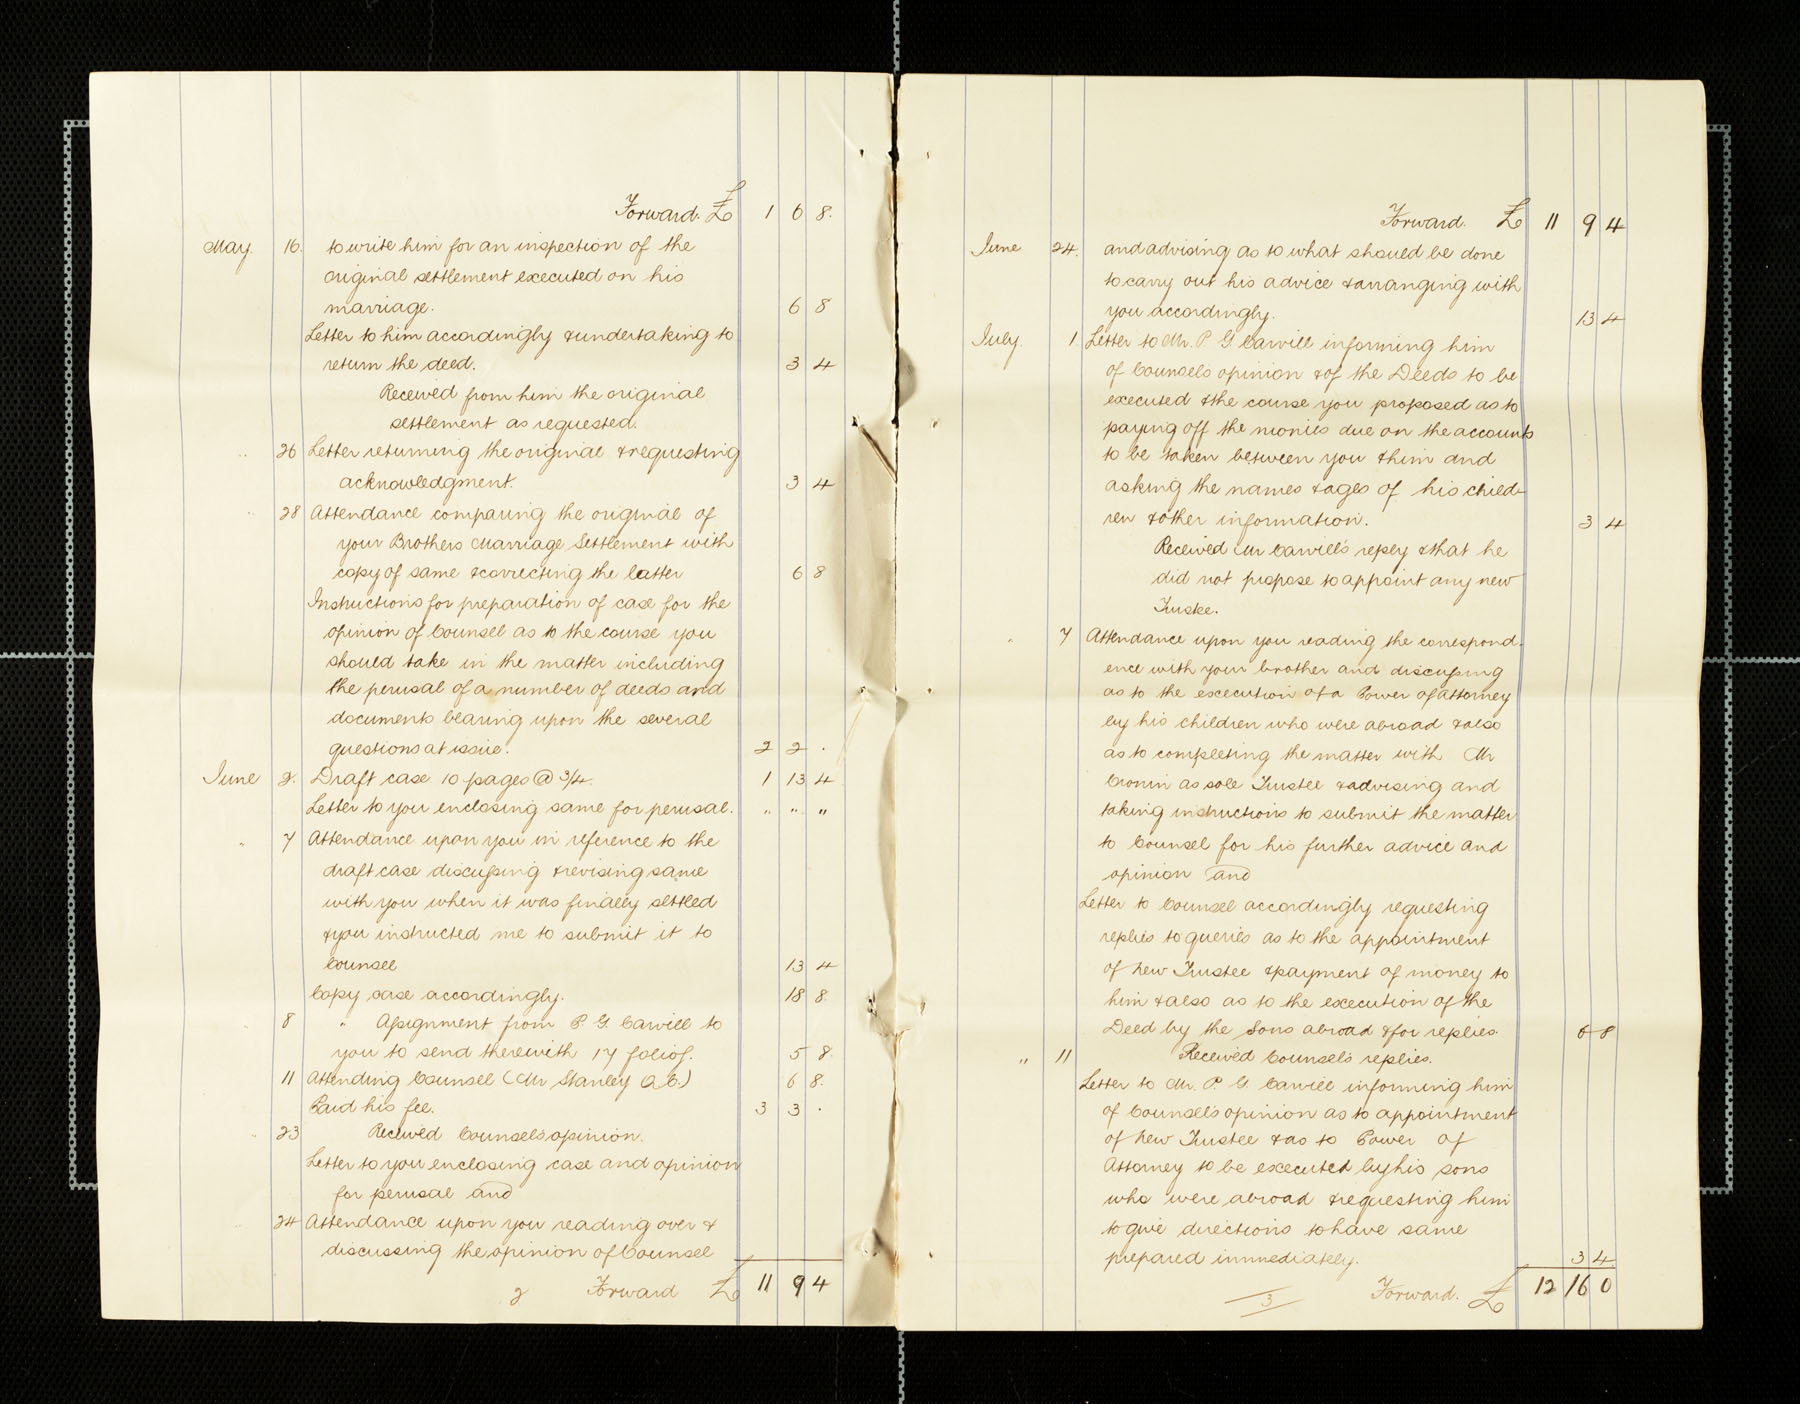 Forward. £ 1 6 8.
May. 16. to write him for an inspection of the
original settlement executed on his
marriage. 6 8
Letter to him accordingly & undertaking to
return the deed. 3 4
Received from him the original
settlement as requested.
" 26 Letter returning the original & requesting
acknowledgment. 3 4
" 28 Attendance comparing the original of
your Brothers Marriage Settlement with
copy of same & correcting the latter 6 8
Instructions for preparation of case for the
opinion of Counsel as to the course you
should take in the matter including
the perusal of a number of deeds and
documents bearing upon the several
questions at issue. 2 2 .
June 2. Draft case 10 pages @ 3/4. 1 13 4
Letter to you enclosing same for perusal. " " "
" 7 Attendance upon you in reference to the
draft case discussing & revising same
with you when it was finally settled
& you instructed me to submit it to
Counsel 13 4
Copy case accordingly. 18 8
" 8 " Assignment from P. G. Carvill to
you to send therewith 17 folios. 5 8.
11 Attending Counsel (Mr Stanley Q.C.) 6 8.
Paid his fee. 3 3 .
" 23 Received Counsels opinion.
Letter to you enclosing case and opinion
for perusal and
" 24 Attendance upon you reading over &
discussing the opinion of Counsel
2 Forward £ 11 9 4
Forward. £ 11 9 4
June 24. and advising as to what should be done
to carry out his advice & arranging with
you accordingly. 13 4
July. 1 Letter to Mr. P. G Carvill informing him
of Counsels opinion & of the Deeds to be
executed & the course you proposed as to
paying off the monies due on the accounts
to be taken between you & him and
asking the names & ages of his child-
ren & other information. 3 4
Received Mr Carvill's reply & that he
did not propose to appoint any new
Trustee.
" 7 Attendance upon you reading the correspond-
ence with your brother and discussing
as to the execution of a Power of Attorney
by his children who were abroad & also
as to completing the matter with Mr
Cronin as sole Trustee & advising and
taking instructions to submit the matter
to Counsel for his further advice and
opinion and
Letter to Counsel accordingly requesting
replies to queries as to the appointment
of new Trustee & payment of money to
him & also as to the execution of the
Deed by the Sons abroad & for replies. 6 8
" 11 Received Counsel's replies.
Letter to Mr. P. G. Carvill informing him
of Counsels opinion as to appointment
of new Trustee & as to Power of
Attorney to be executed by his sons
who were abroad & requesting him
to give directions to have same
prepared immediately. 3 4
3 Forward. £ 12 16 0